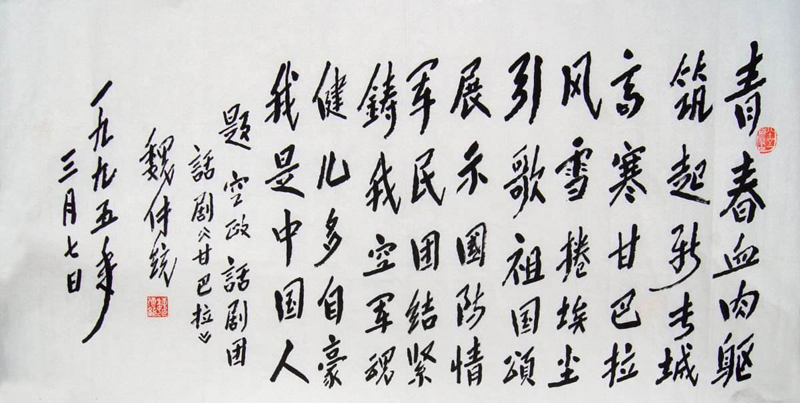 青春血肉躯
筑起新长城
高寒甘巴拉
风雪捲埃尘
引歌祖国頌
展示國防情
军民团结紧
鑄我空军魂
健儿多自豪
我是中国人
题空政話剧团
話剧《甘巴拉》
魏传统
一九九五年
三月七日